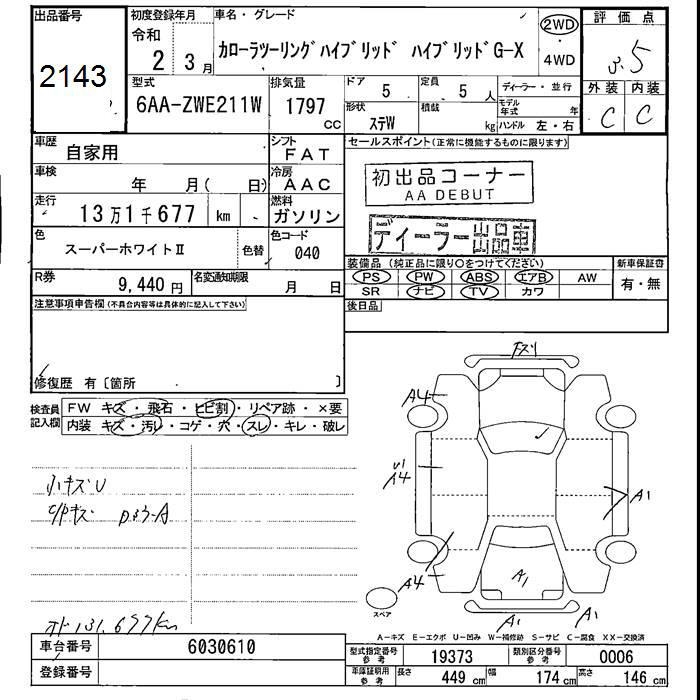 出品番号
2143
初度登録年月
令和
2 3月
車名・グレード
カローラツーリングハイブリッド ハイブリッドG-X
2WD
・
4WD
評価点
3.5
外装 内装
C C
型式
6AA-ZWE211W
排気量
1797
CC
ドア
5
定員
5 人
形状
ステW
積載
kg
ディーラー・並行
モデル年式 年
ハンドル 左・右
車歴
自家用
シフト
FAT
車検
年 月( 日)
冷房
AAC
走行
13万1千677 km
燃料
ガソリン
色
スーパーホワイトⅡ
色替
色コード
040
R券
9,440円
名変通知期限
月 日
セールスポイント(正常に機能するものに限ります)
初出品コーナー
AA DEBUT
ディーラー出品車
装備品(純正品に限り○をつけてください)
新車保証書
PS PW ABS エアB AW
有・無
SR ナビ TV カワ
後日品
注意事項申告欄(不具合内容等は具体的に記入して下さい)
修復歴 有〔箇所 〕
検査員記入欄
FW キズ・飛石・ヒビ割・リペア跡・×要
内装 キズ・汚レ・コゲ・穴・スレ・キレ・破レ
小キズU
オド131,677km
Fスリ
A4
A4
A1
A4
A1
A1
A1
スペア
A-キズ E-エクボ U-凹み W-補修跡 S-サビ C-腐食 XX-交換済
車台番号
6030610
登録番号
型式指定番号
参考
19373
類別区分番号
参考
0006
車庫証明用
参考
長さ 449 cm
幅 174 cm
高さ 146 cm